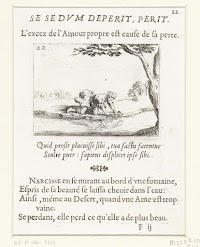 22
SE SEDVM DEPERIT, PERIT.
L'excez de l'Amour propre est cause de sa perte.
Quid profit placuisse sibi, tua facta fatentur
Stulte puer: sapiens displicet ipse sibi.
NARCISSE en se mirant au bord d'vne fontaine,
Espris de sa beauté se laissa cheoir dans l'eau:
Ainsi, méme au Desert, quand vne Ame est trop
vaine.
Se perdant, elle perd ce qu'elle a de plus beau.
F ij